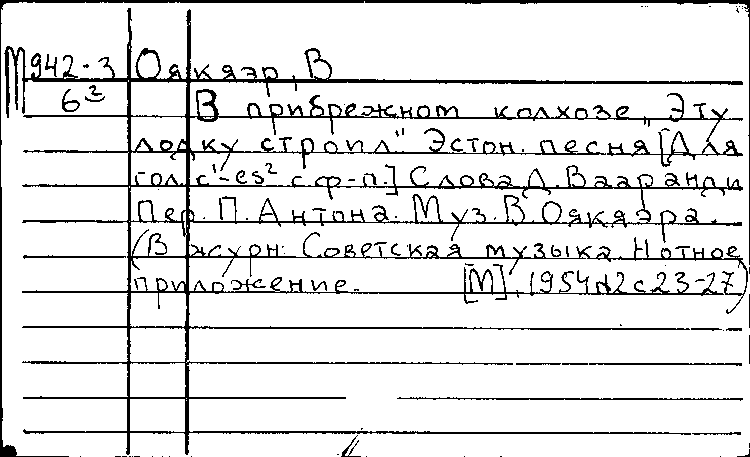 М942-3 Оякяэр, В
6² В прибрежном колхозе „Эту
лодку строил" Эстон. песня [Для
гол. с¹-es² с ф-п.] Слова Д. Вааранди
Пер. П. Антона. Муз. В. Оякяэра.
(В журн: Советская музыка. Нотное
приложение. [М], 1954 №2 с 23-27)